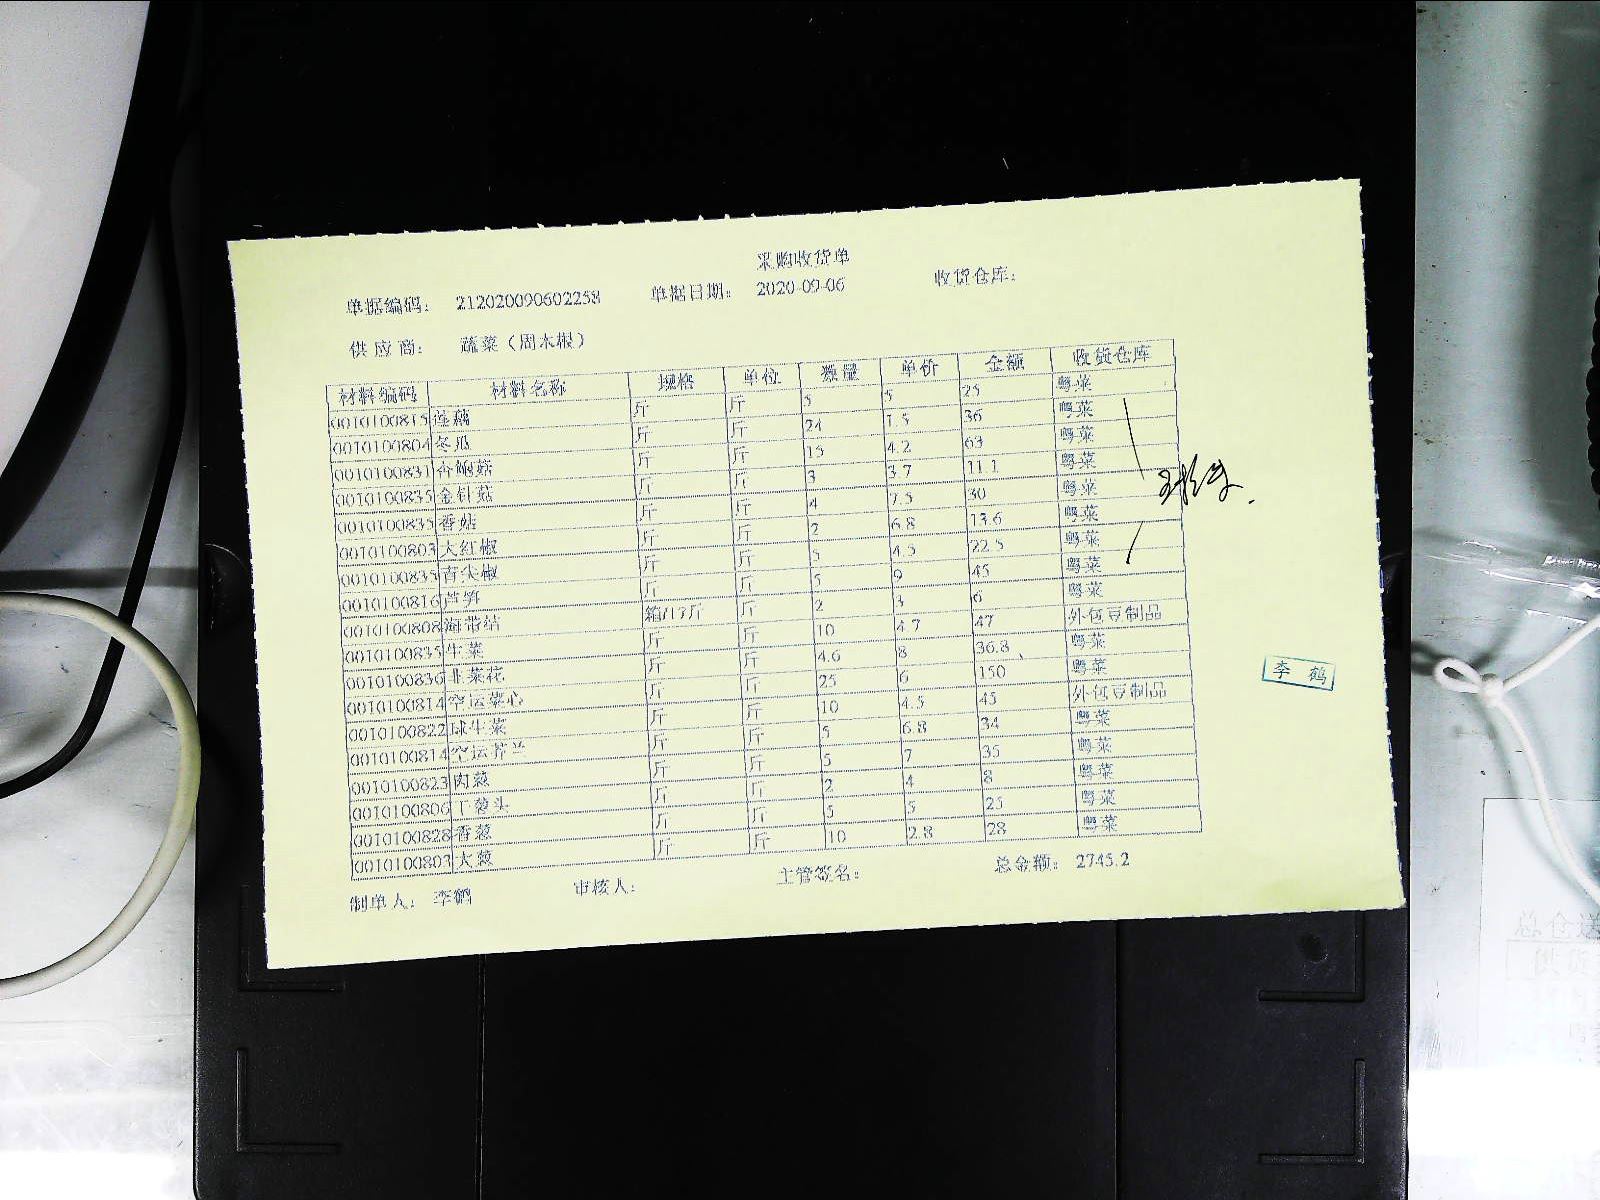 采购收货单
单据编码： 212020090602258 单据日期： 2020-09-06 收货仓库：
供应商： 蔬菜（周木根）
材料编码 材料名称 规格 单位 数量 单价 金额 收货仓库
0010100815 莲藕 斤 斤 5 5 25 粤菜
0010100804 冬瓜 斤 斤 24 1.5 36 粤菜
0010100831 杏鲍菇 斤 斤 15 4.2 63 粤菜
0010100835 金针菇 斤 斤 3 3.7 11.1 粤菜
0010100835 香菇 斤 斤 4 7.5 30 粤菜
0010100803 大红椒 斤 斤 2 6.8 13.6 粤菜
0010100835 青尖椒 斤 斤 5 4.5 22.5 粤菜
0010100816 芦笋 斤 斤 5 9 45 粤菜
0010100808 海带结 斤 2 3 6 粤菜
0010100835 生菜 斤 斤 10 4.7 47 外包豆制品
0010100836 韭菜花 斤 斤 4.6 8 36.8 粤菜
0010100814 空运菜心 斤 斤 25 6 150 粤菜
0010100822 球生菜 斤 斤 10 4.5 45 外包豆制品
0010100814 空运芥兰 斤 斤 5 6.8 34 粤菜
0010100823 肉葱 斤 斤 5 7 35 粤菜
0010100806 干葱头 斤 斤 2 4 8 粤菜
0010100828 香葱 斤 斤 5 5 25 粤菜
0010100803 大葱 斤 斤 10 2.8 28 粤菜
制单人： 李鹤 审核人： 主管签名： 总金额： 2745.2
李鹤
总仓送